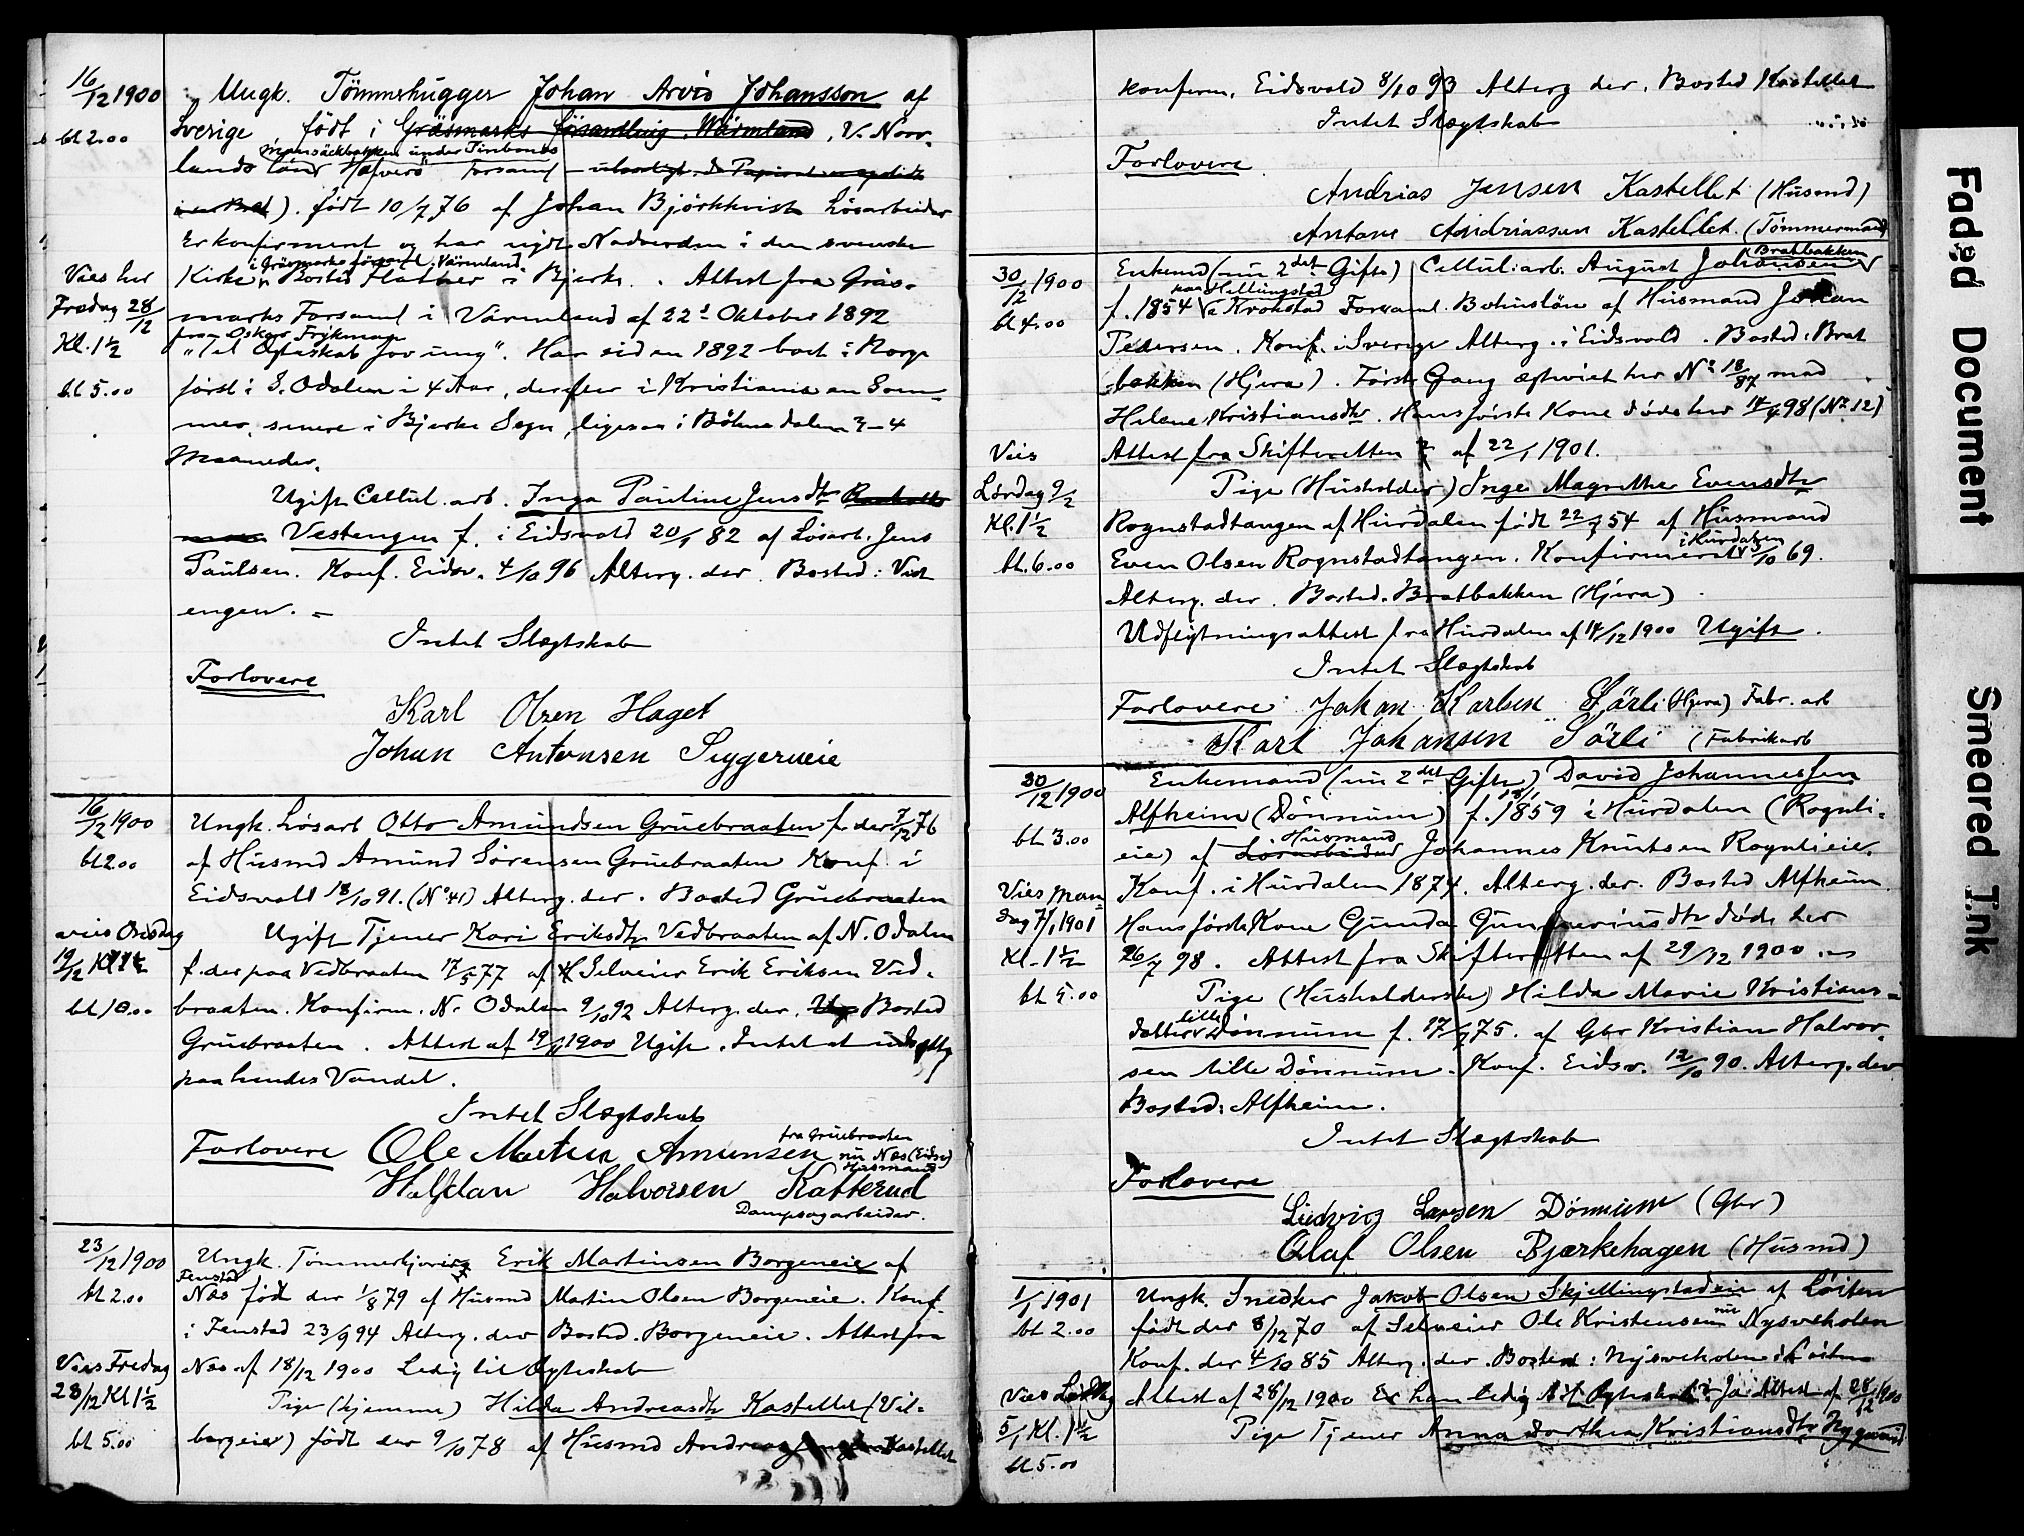 16/12 1900
bt 2.00
Ungk. Tömmerhugger Johan Arvid Johansson af
Sverige, födt i Gräsmarks församling Wärmland, V. Norr-
Mansäckbakken under Tinbonäs
lands län, Hafverö Forsaml
födt 10/7 76 af Johan Björkkvist Lösarbeider
Er konfirmeret og har nydt Nadverden i den svenske
i Gräsmarks församl. Värmland
Kirke. Bosted Flather i Bjerke. Attest fra Gräs-
Vies her
Fredag 28/12
Kl. 1 1/2
bt 5.00
marks Forsaml i Värmland af 22de Oktober 1892
fra Oskar Frykman
"til Ægteskab for ung". Har siden 1892 boet i Norge
först i S. Odalen i 4 Aar, derefter i Kristiania en Som-
mer, senere i Bjerke Sogn, ligesaa i Böhmsdalen 3-4
Maaneder.
Ugift Cellul. arb. Inga Pauline Jensdtr
Vestengen f. i Eidsvold 20/1 82 af Lösarb. Jens
Paulsen. Konf. Eidsv. 4/10 96 Alterg. der. Bosted: Vest
engen.
Intet Slægtskab
Forlovere
Karl Olsen Haget
Johan Antonsen Syggerueie
16/12 1900
bt 2.00
Ungk. Lösarb Otto Amundsen Gruebraaten f. der 7/12 76
af Husmd Amund Sörensen Gruebraaten Konf. i
Eidsvold 18/10 91. (No 41) Alterg. der. Bosted Gruebraaten
vies Onsdag
19/12 Kl 1 1/2
bt 10.00
Ugift Tjener Kari Eriksdtr Vedbraaten af N. Odalen
f. der paa Vedbraaten 17/5 77 af Selveier Erik Eriksen Ved-
braaten. Konfirm. N. Odalen 9/10 92 Alterg. der. Bosted
Gruebraaten. Attest af 19/11 1900 Ugift. Intet at udsætte
paa hendes Vandel.
Intet Slægtskab
Forlovere Ole Martin Amunsen fra Gruebraaten
nu Næs (Eidsv)
Husmand
Halfdan Halvorsen Katterud
Dampsagarbeider.
23/12 1900
bt 2.00
Ungk. Tömmerkjöring Erik Martinsen Borgeneie af
Fenstad
Næs född der 1/8 79 af Husmd Martin Olsen Borgeneie. Konf.
i Fenstad 23/9 94 Alterg. der Bosted. Borgeneie. Attest fra
Næs af 18/12 1900 Ledig til Ægteskab
Vies Fredag
28/12 Kl 1 1/2
bt 5.00
Pige (hjemme) Hilda Andreasdtr Kastellet (Vil-
bergeie) födt der 9/10 78 af Husmd Andreas Kastellet
konfirm. Eidsvold 8/10 93 Alterg der. Bosted Kastellet
Intet Slægtskab
Forlovere
Andrias Jensen Kastellet (Husmd)
Antane Andriassen Kastellet. (Tömmermand)
30/12 1900
bt 4.00
Bratbakken
Enkemd (nu 2det Gifte) Cellul. arb. August Johansen
paa Hellingstad
f. 1854 i Krokstad Forsaml. Bohuslän af Husmand Johan
Pedersen. Konf. i Sverige Alterg. i Eidsvold. Bosted: Brat
bakken (Hjera). Förste Gang ægteviet her No 18/87 med
Helene Kristiansdtr. Hans förste Kone döde her 14/4 98 (No 12)
Attest fra Skifteretten af 22/1 1901.
Vies
Lördag 9/2
Kl. 1 1/2
bt. 6.00
Pige (Husholder) Inge Magrethe Evensdtr
Rognstadtangen af Hurdalen födt 22/7 54 af Husmand
i Hurdalen
Even Olsen Rognstadtangen. Konfirmeret /10 69.
Alterg. der. Bosted. Bratbakken (Hjera)
Udflytningsattest fra Hurdalen af 14/12 1900 Ugift.
Intet Slægtskab
Forlovere: Johan Karlsen Sörli (Hjera) Fabr. arb
Karl Johansen Sörli (Fabrikarb
30/12 1900
bt 3.00
Enkemand (nu 2det Gifte) David Johannessen
Alfheim (Dönnum) f. 1859 i Hurdalen (Rognli-
Husmand
eie) af Lösarbeider Johannes Knutsen Rognlieie.
Konf. i Hurdalen 1874. Alterg. der. Bosted Alfheim.
Vies Man-
dag 7/1 1901
Kl. 1 1/2
bt 5.00
Hans förste Kone Gunda Gunneriusdtr döde her
26/7 98. Attest fra Skifteretten af 29/12 1900.
Pige (Husholderske) Hilda Marie Kristians-
lille
datter Dönnum f. 17/7 75. af Gbr Kristian Halvor-
sen lille Dönnum. Konf. Eidsv. 12/10 90. Alterg. der
Bosted: Alfheim.
Intet Slægtskab
Forlovere
Ludvig Larsen Dönnum (Gbr)
Olaf Olsen Bjærkehagen (Husmd)
1/1 1901
bt 2.00
Ungk. Snedker Jakob Olsen Skjellingstadeie af Löiten
födt der 8/12 70 af Selveier Ole Kristensen nu Nysveholen
Konf. der 4/10 85 Alterg. der. Bosted: Nysveholen i Löiten
Vies Lördag
5/1 Kl. 1 1/2
bt 5.00
Attest af 28/12 1900 Er han ledig til Ægteskab? Ja Attest af 28/12 1900
Pige Tjener Anna Dorthea Kristiansdtr Nygaard
Faded Document
Smeared Ink